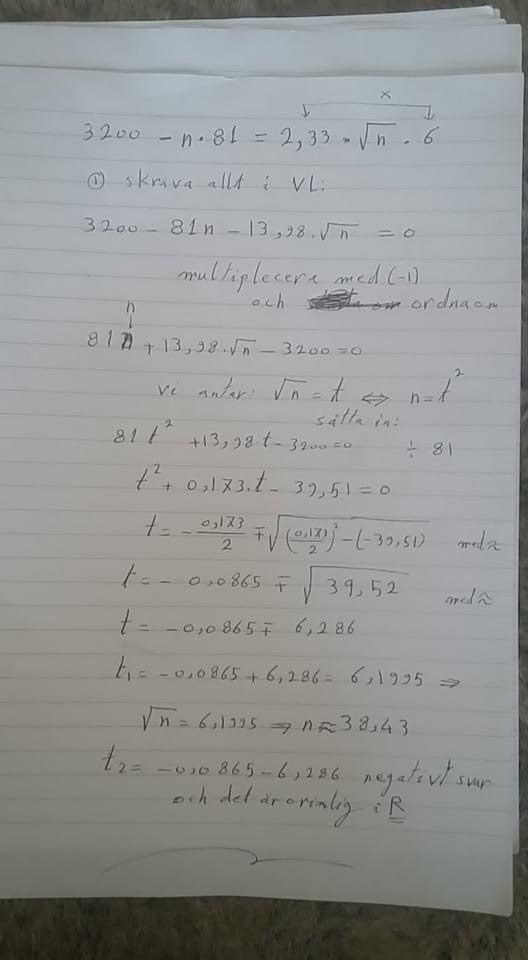 x
3200 - n · 81 = 2,33 · √n · 6
① skriva allt i VL:
3200 - 81n - 13,98 · √n = 0
multiplecera med (-1)
och ordna om
n
81n + 13,98 · √n - 3200 = 0
vi antar: √n = t ⇔ n = t²
sätta in:
81 t² + 13,98 t - 3200 = 0 ÷ 81
t² + 0,173 · t - 39,51 = 0
t = - 0,173/2 ∓ √((0,173/2)² - (-39,51)) med ≈
t = - 0,0865 ∓ √39,52 med ≈
t = -0,0865 ∓ 6,286
t₁ = -0,0865 + 6,286 = 6,1995 ⇒
√n = 6,1995 ⇒ n ≈ 38,43
t₂ = -0,0865 - 6,286 negativt svar
och det är orimlig i R